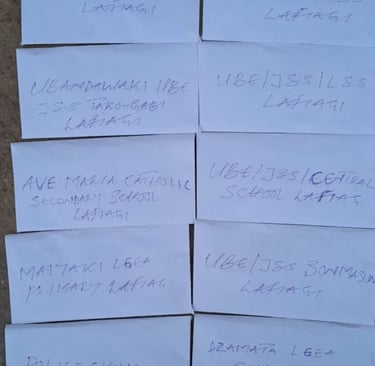 LAFIAGI
LAFIAGI
UBANDAWAKI UBE
JSS TAKO-GABI
LAFIAGI
UBE/JSS/LSS
LAFIAGI
AVE MARIA CATHOLIC
SECONDARY SCHOOL
LAFIAGI
UBE/JSS/CETRAL
SCHOOL LAFIAG
MAIYAKI LGEA
PRIMARY LAFIAG
UBE/JSS SONMASUN
LAFIAGI
DZAMATA LGEA